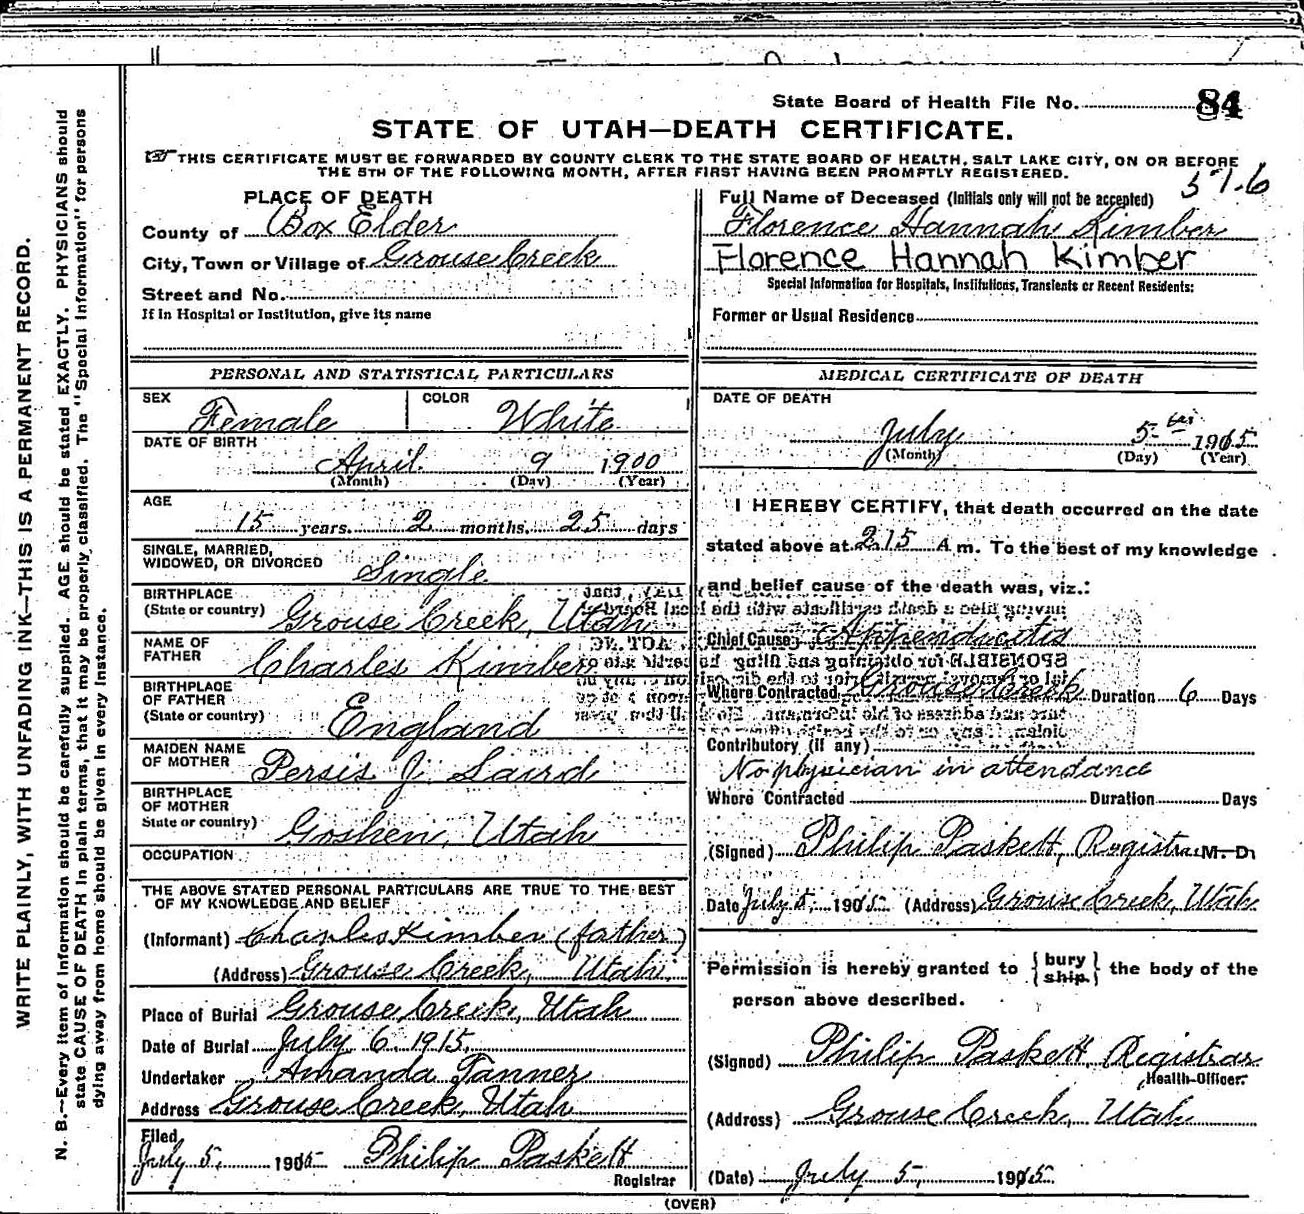 State Board of Health File No. 84
STATE OF UTAH—DEATH CERTIFICATE.
THIS CERTIFICATE MUST BE FORWARDED BY COUNTY CLERK TO THE STATE BOARD OF HEALTH, SALT LAKE CITY, ON OR BEFORE
THE 5TH OF THE FOLLOWING MONTH, AFTER FIRST HAVING BEEN PROMPTLY REGISTERED.
PLACE OF DEATH
County of Box Elder
City, Town or Village of Grouse Creek
Street and No.
If In Hospital or Institution, give its name
Full Name of Deceased (Initials only will not be accepted)
Florence Hannah Kimber
Florence Hannah Kimber
Special Information for Hospitals, Institutions, Transients or Recent Residents:
Former or Usual Residence
PERSONAL AND STATISTICAL PARTICULARS
SEX Female COLOR White
DATE OF BIRTH
April 9 1900
(Month) (Day) (Year)
AGE
15 years. 2 months. 25 days
SINGLE, MARRIED,
WIDOWED, OR DIVORCED Single
BIRTHPLACE
(State or country) Grouse Creek, Utah
NAME OF
FATHER Charles Kimber
BIRTHPLACE
OF FATHER
(State or country) England
MAIDEN NAME
OF MOTHER Persis J Laird
BIRTHPLACE
OF MOTHER
State or country) Goshen, Utah
OCCUPATION
THE ABOVE STATED PERSONAL PARTICULARS ARE TRUE TO THE BEST
OF MY KNOWLEDGE AND BELIEF
(Informant) Charles Kimber (father)
(Address) Grouse Creek, Utah
Place of Burial Grouse Creek, Utah
Date of Burial July 6 1915
Undertaker Amanda Tanner
Address Grouse Creek, Utah
Filed
July 5, 1915 Philip Paskett
Registrar
MEDICAL CERTIFICATE OF DEATH
DATE OF DEATH
July 5 1915
(Month) (Day) (Year)
I HEREBY CERTIFY, that death occurred on the date
stated above at 2.15 A m. To the best of my knowledge
and belief cause of the death was, viz.:
Chief Cause Appendicatis
Where Contracted Grouse Creek Duration 6 Days
Contributory (if any)
No physician in attendance
Where Contracted Duration Days
(Signed) Philip Paskett, Registrar M. D.
Date July 5, 1915 (Address) Grouse Creek, Utah
Permission is hereby granted to { bury ship } the body of the
person above described.
(Signed) Philip Paskett, Registrar
Health Officer.
(Address) Grouse Creek, Utah
(Date) July 5, 1915
(OVER)
WRITE PLAINLY, WITH UNFADING INK—THIS IS A PERMANENT RECORD.
N. B.—Every item of information should be carefully supplied. AGE should be stated EXACTLY. PHYSICIANS should
state CAUSE OF DEATH in plain terms, that it may be properly classified. The "Special Information" for persons
dying away from home should be given in every instance.